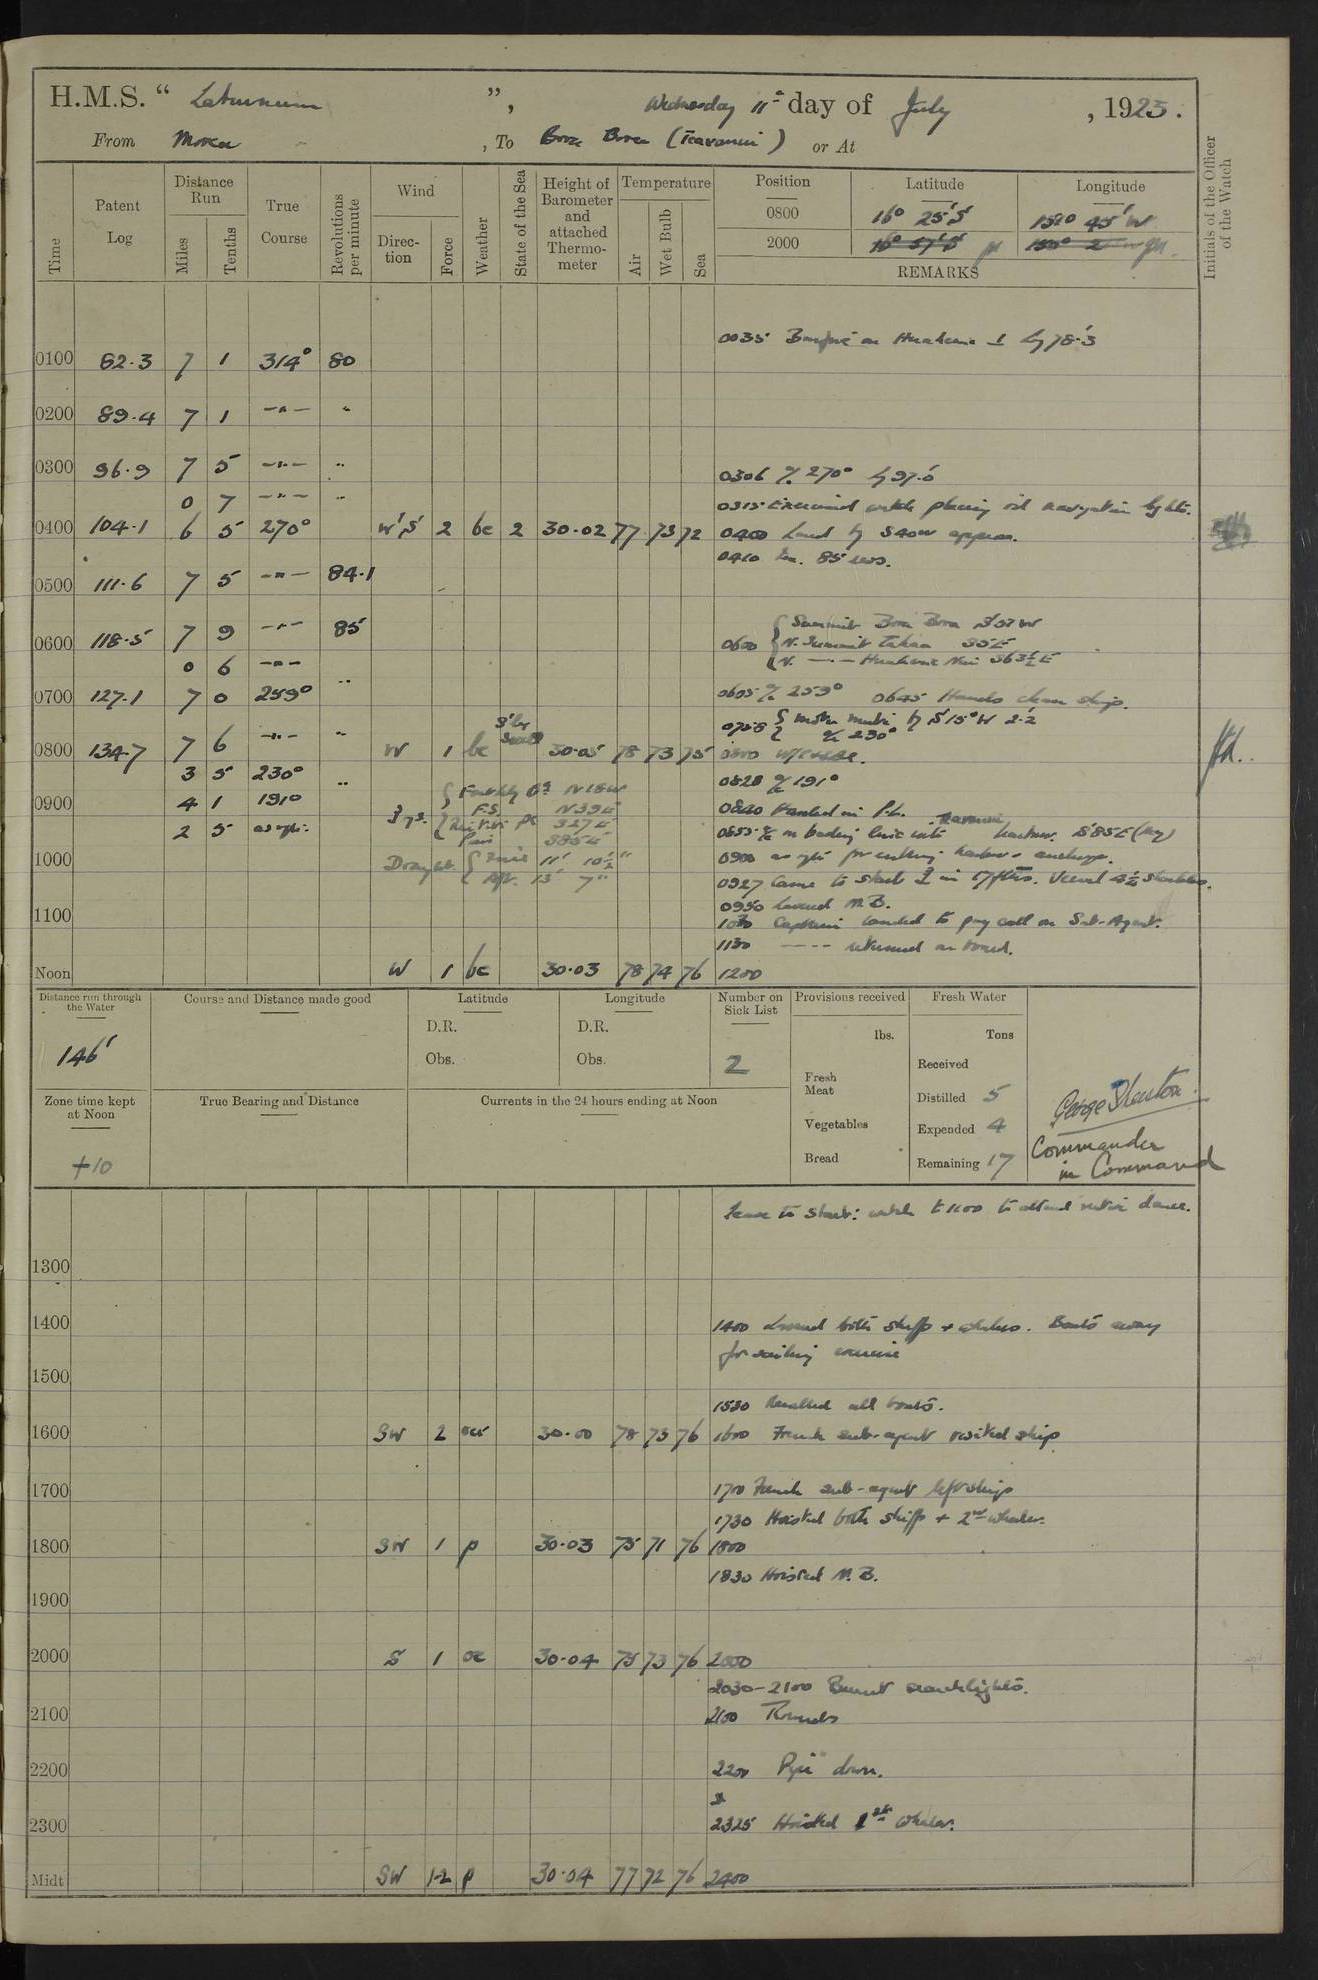 H.M.S. “ Laburnum ”, Wednesday 11th day of July , 1923.
From Morea , To Bora Bora (Teavanui) or At
Initials of the Officer of the Watch
Time
Patent Log
Distance Run
Miles
Tenths
True Course
Revolutions per minute
Wind
Direction
Force
Weather
State of the Sea
Height of Barometer and attached Thermometer
Temperature
Air
Wet Bulb
Sea
Position Latitude Longitude
0800 16° 25' S 152° 45' W
2000
REMARKS
0035 Bonfire on Huahine ⊥ lg 78.3
0100 82.3 7 1 314° 80
0200 89.4 7 1 —"— "
0300 96.9 7 5 —"— "
0306 a/c 270° lg 97.6
0 7 —"— "
0315 Exercised watch placing oil navigation lights.
0400 104.1 6 5 270° W'S 2 bc 2 30.02 77 73 72 0400 Land S40W approx.
0410 Inc. 85 revs.
0500 111.6 7 5 —"— 84.1
0600 118.5 7 9 —"— 85
0600 { Summit Bora Bora S57W
N. Summit Tahaa S5E
N. —"— Huahine Nui S63½E
0 6 —"—
0700 127.1 7 0 259° "
0605 a/c 259° 0645 Hands clean ship.
0758 { Motu Mute S15°W 2.2
a/c 230°
0800 134.7 7 6 —"— " W 1 bc 30.05 78 73 75 0800
3 5 230° "
0820 a/c 191°
0900 4 1 191°
0840 Handed in P.L.
2 5 as req:
Bgs. { N18W
F.S. N39E
Pt S27E
S85E
0855 a/c on leading line into Teavanui harbour. S85E (Mg)
Draught. { Fore 11' 10½"
Aft. 13' 7"
1000
0900 as req for entering harbour & anchoring.
0927 Came to starb ⚓ in 17 fms. Veered 4½ shackles.
0950 Lowered M.B.
1100
1030 Captain landed to pay call on Sub-Agent.
1130 —"— returned on board.
Noon W 1 bc 30.03 78 74 76 1200
Distance run through the Water
146'
Course and Distance made good
Latitude
D.R.
Obs.
Longitude
D.R.
Obs.
Number on Sick List
2
Provisions received
lbs.
Fresh Meat
Vegetables
Bread
Fresh Water
Tons
Received
Distilled 5
Expended 4
Remaining 17
Zone time kept at Noon
+10
True Bearing and Distance
Currents in the 24 hours ending at Noon
Commander
in Command
Leave to starb: watch to attend native dance.
1300
1400
1400 Lowered both skiffs + whalers. Boats away
for sailing exercise
1500
1530 Recalled all boats.
1600 SW 2 30.00 78 73 76 1600 French sub-agent visited ship
1700
1700 French sub-agent left ship
1730 Hoisted both skiffs + 2nd whaler.
1800 SW 1 p 30.03 75 71 76 1800
1830 Hoisted M.B.
1900
2000 S 1 oc 30.04 75 73 76 2000
2030-2100 Burnt searchlights.
2100
2100 Rounds
2200
2200 Pipe down.
2300
2325 Hoisted 1st whaler.
Midt SW 1-2 p 30.04 77 72 76 2400